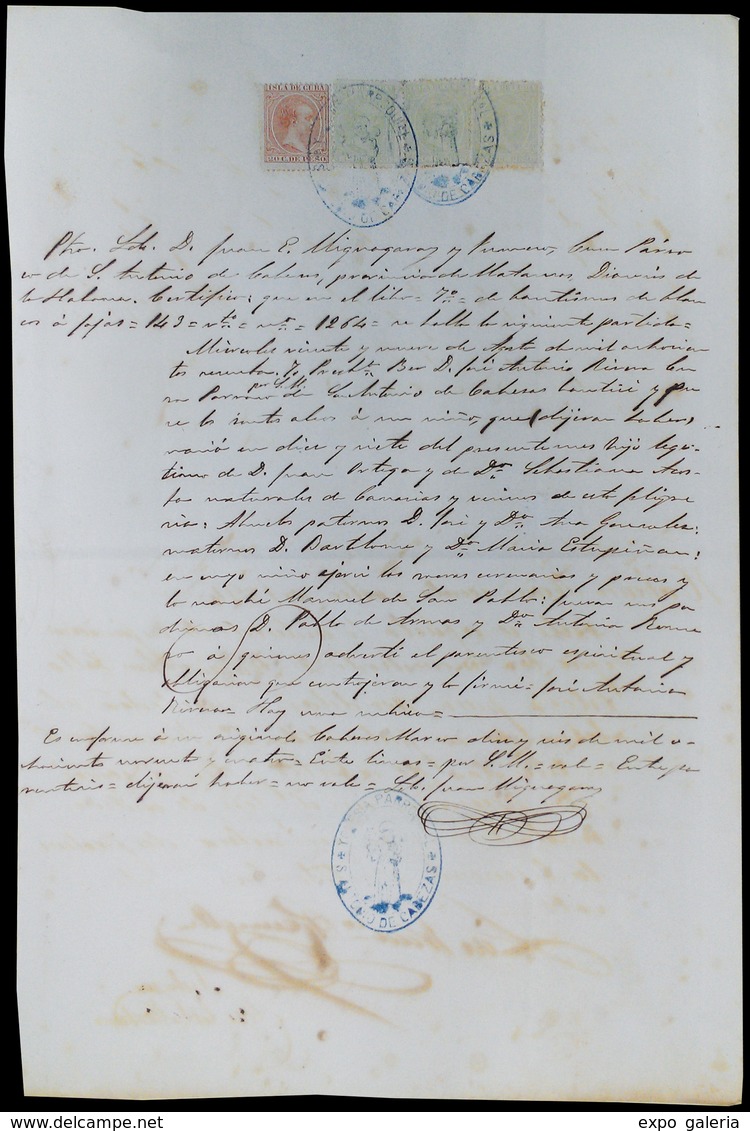 ISLA DE CUBA
20 C. DE P. 20
DE CABEZAS
DE CABEZAS
Pbro. Ldo. D. Juan E. Mignagaray y Cura Párro
co de S. Antonio de Cabezas, provincia de Matanzas, Diocesis de
la Habana. Certifico: que en el libro 7o. de bautismos de blan
cos á fojas = 143 = vto = no = 1264 = se halla la siguiente partida =
Miércoles veinte y nueve de Agosto de mil ochocien
tos Yo Presbto. Br. D. José Antonio Rivera Cu
ra Parroco por S.M. de San Antonio de Cabezas bauticé y pu
se los santos oleos á un niño, que dijeron haber
nació en diez y siete del presente mes hijo legi
timo de D. Juan Ortega y de Da. Sebastiana Acos
ta naturales de Canarias y vecinos de esta feligre
sia: Abuelos paternos D. José y Da. Ana Gonzales:
maternos D. Bartlome y Da. Maria Estupiñan:
en cuyo niño ejercí las sacras ceremonias y preces y
lo nombré Manuel de San Pablo: fueron sus pa
drinos D. Pablo de Armas y Da. Antonia Rome
ro á quienes advertí el parentesco espiritual y
obligacion que contrajeron y lo firmé = José Antonio
Rivera = Hay una rubrica =
Es conforme á su original Cabezas Marzo diez y seis de mil o
chocientos noventa y cuatro = Entre lineas = por S.M. = vale = Entre pa
rentesis = dijeron haber = no vale = Ldo. Juan Mignagaray
S. ANTONIO DE CABEZAS
expo galeria